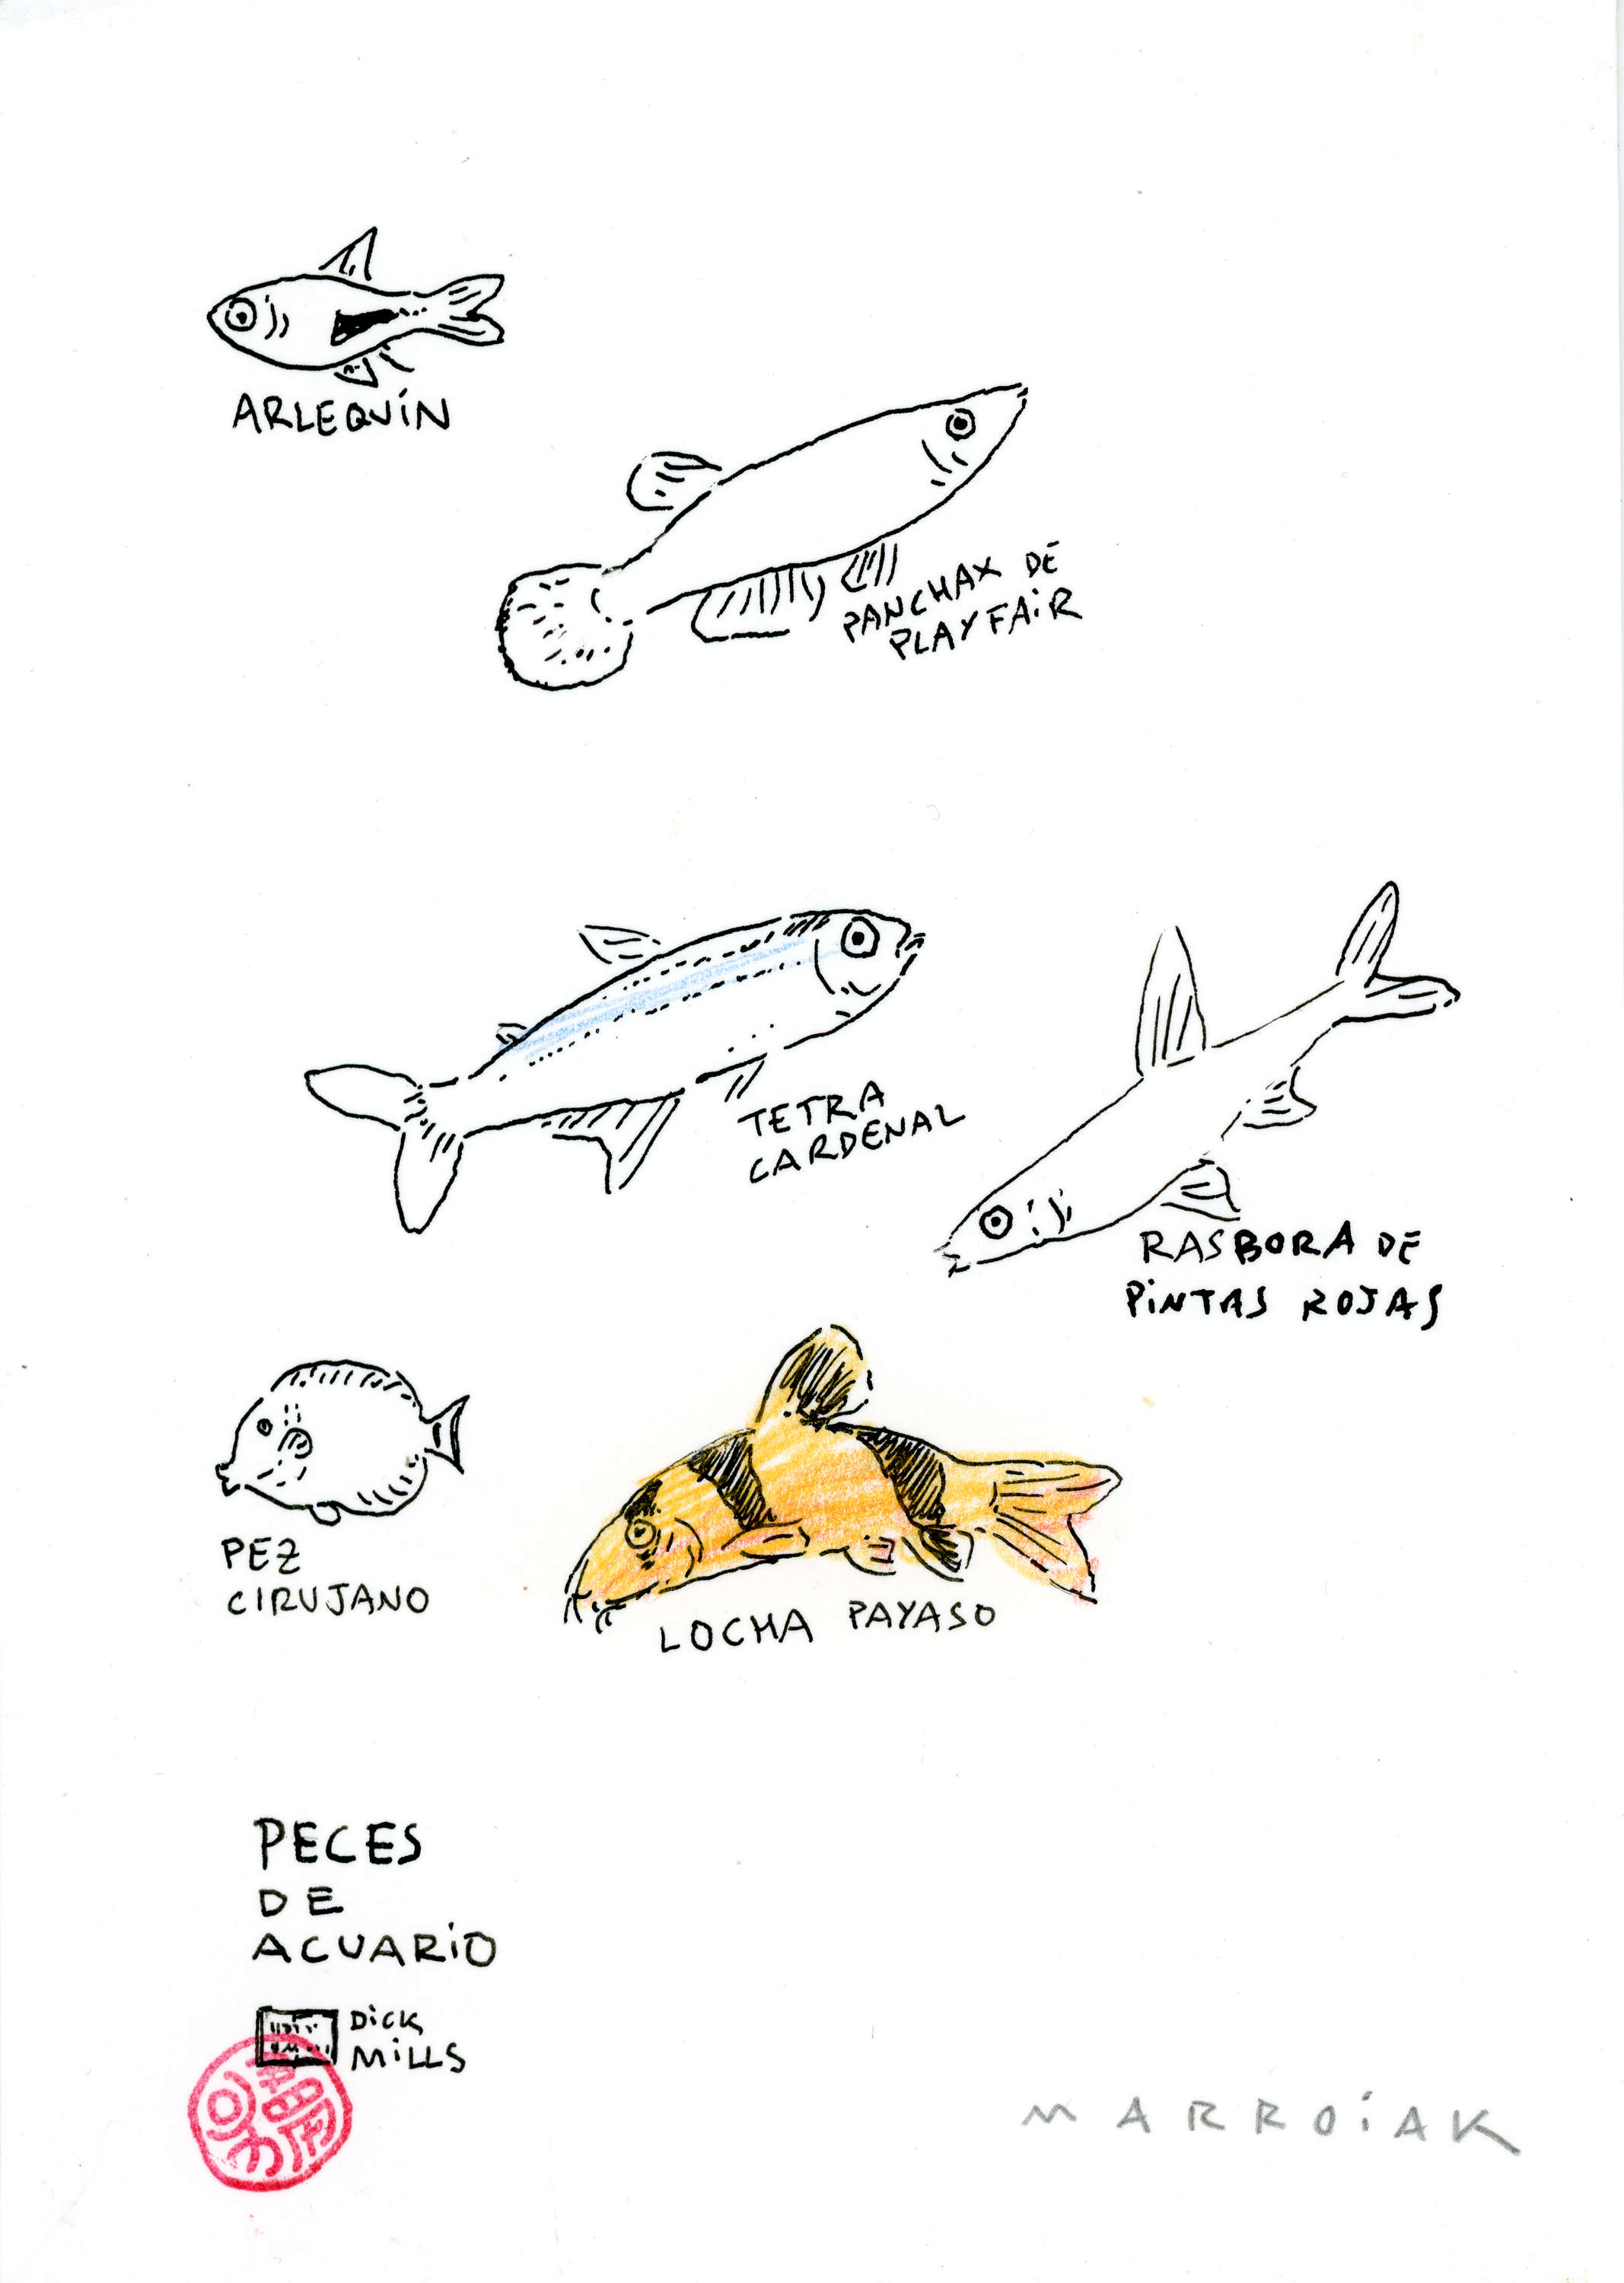 ARLEQUÍN
PANCHAX DE
PLAYFAIR
TETRA
CARDENAL
RASBORA DE
PINTAS ROJAS
PEZ
CIRUJANO
LOCHA PAYASO
PECES
DE
ACUARIO
DICK
MILLS
MARROIAK